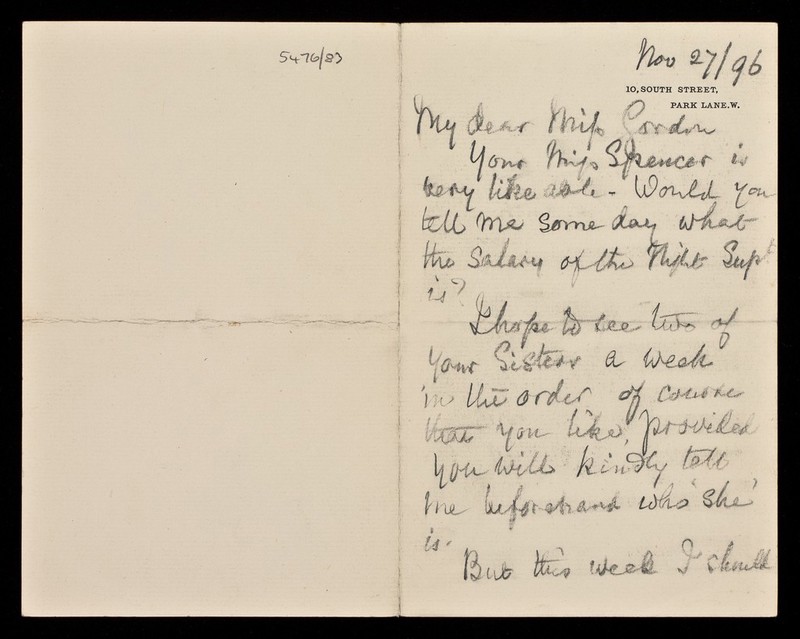 5476/83
Nov 27/96
10, SOUTH STREET,
PARK LANE. W.
My dear Miss Gordon
Your Miss Spencer is
very like able - Would you
tell me some day what
the salary of the Night Supt
is?
I hope to see two of
your Sisters a week
in the order of course
that you like, provided
you will kindly tell
me beforehand who 'she'
is.
But this week I should